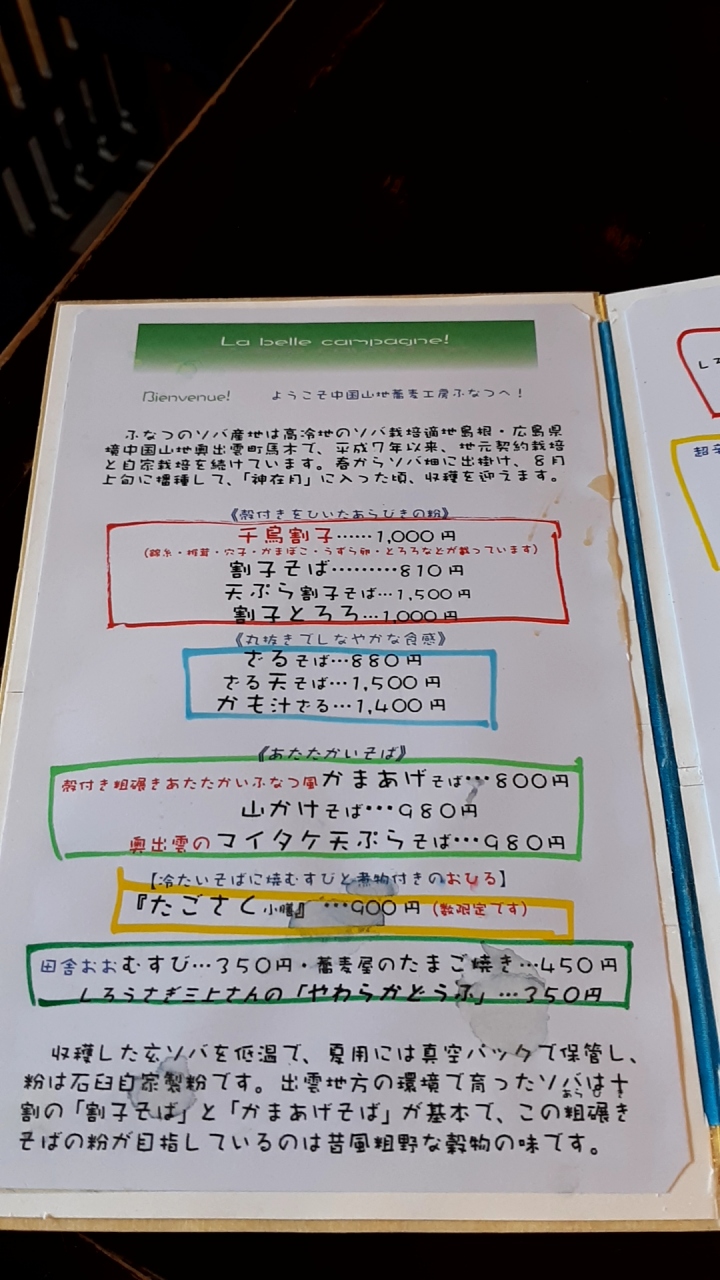 La belle campagne!
Bienvenue! ようこそ中国山地蕎麦工房ふなつへ!
ふなつのソバ産地は高冷地のソバ栽培適地島根・広島県
境中国山地奥出雲町馬木で、平成7年以来、地元契約栽培
と自家栽培を続けています。春からソバ畑に出掛け、8月
上旬に播種して、「神在月」に入った頃、収穫を迎えます。
《殻付きをひいたあらびきの粉》
千鳥割子……1,000円
(錦糸・椎茸・穴子・かまぼこ・うずら卵・とろろなどが載っています)
割子そば………810円
天ぷら割子そば…1,500円
割子とろろ…1,000円
《丸抜きでしなやかな食感》
ざるそば…880円
ざる天そば…1,500円
かも汁ざる…1,400円
《あたたかいそば》
殻付き粗碾きあたたかいふなつ風かまあげそば…800円
山かけそば…980円
奥出雲のマイタケ天ぷらそば…980円
【冷たいそばに焼むすびと煮物付きのおひる】
『たごさく小膳』…900円(数限定です)
田舎おおむすび…350円・蕎麦屋のたまご焼き…450円
しろうさぎ三上さんの「やわらかどうふ」…350円
収穫した玄ソバを低温で、夏用には真空パックで保管し、
粉は石臼自家製粉です。出雲地方の環境で育ったソバは十
割の「割子そば」と「かまあげそば」が基本で、この粗碾き
そばの粉が目指しているのは昔風粗野な穀物の味です。